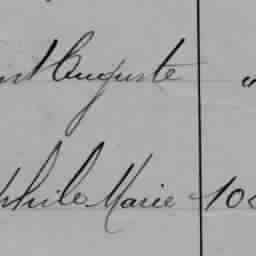 Auguste "
phile Marie 10